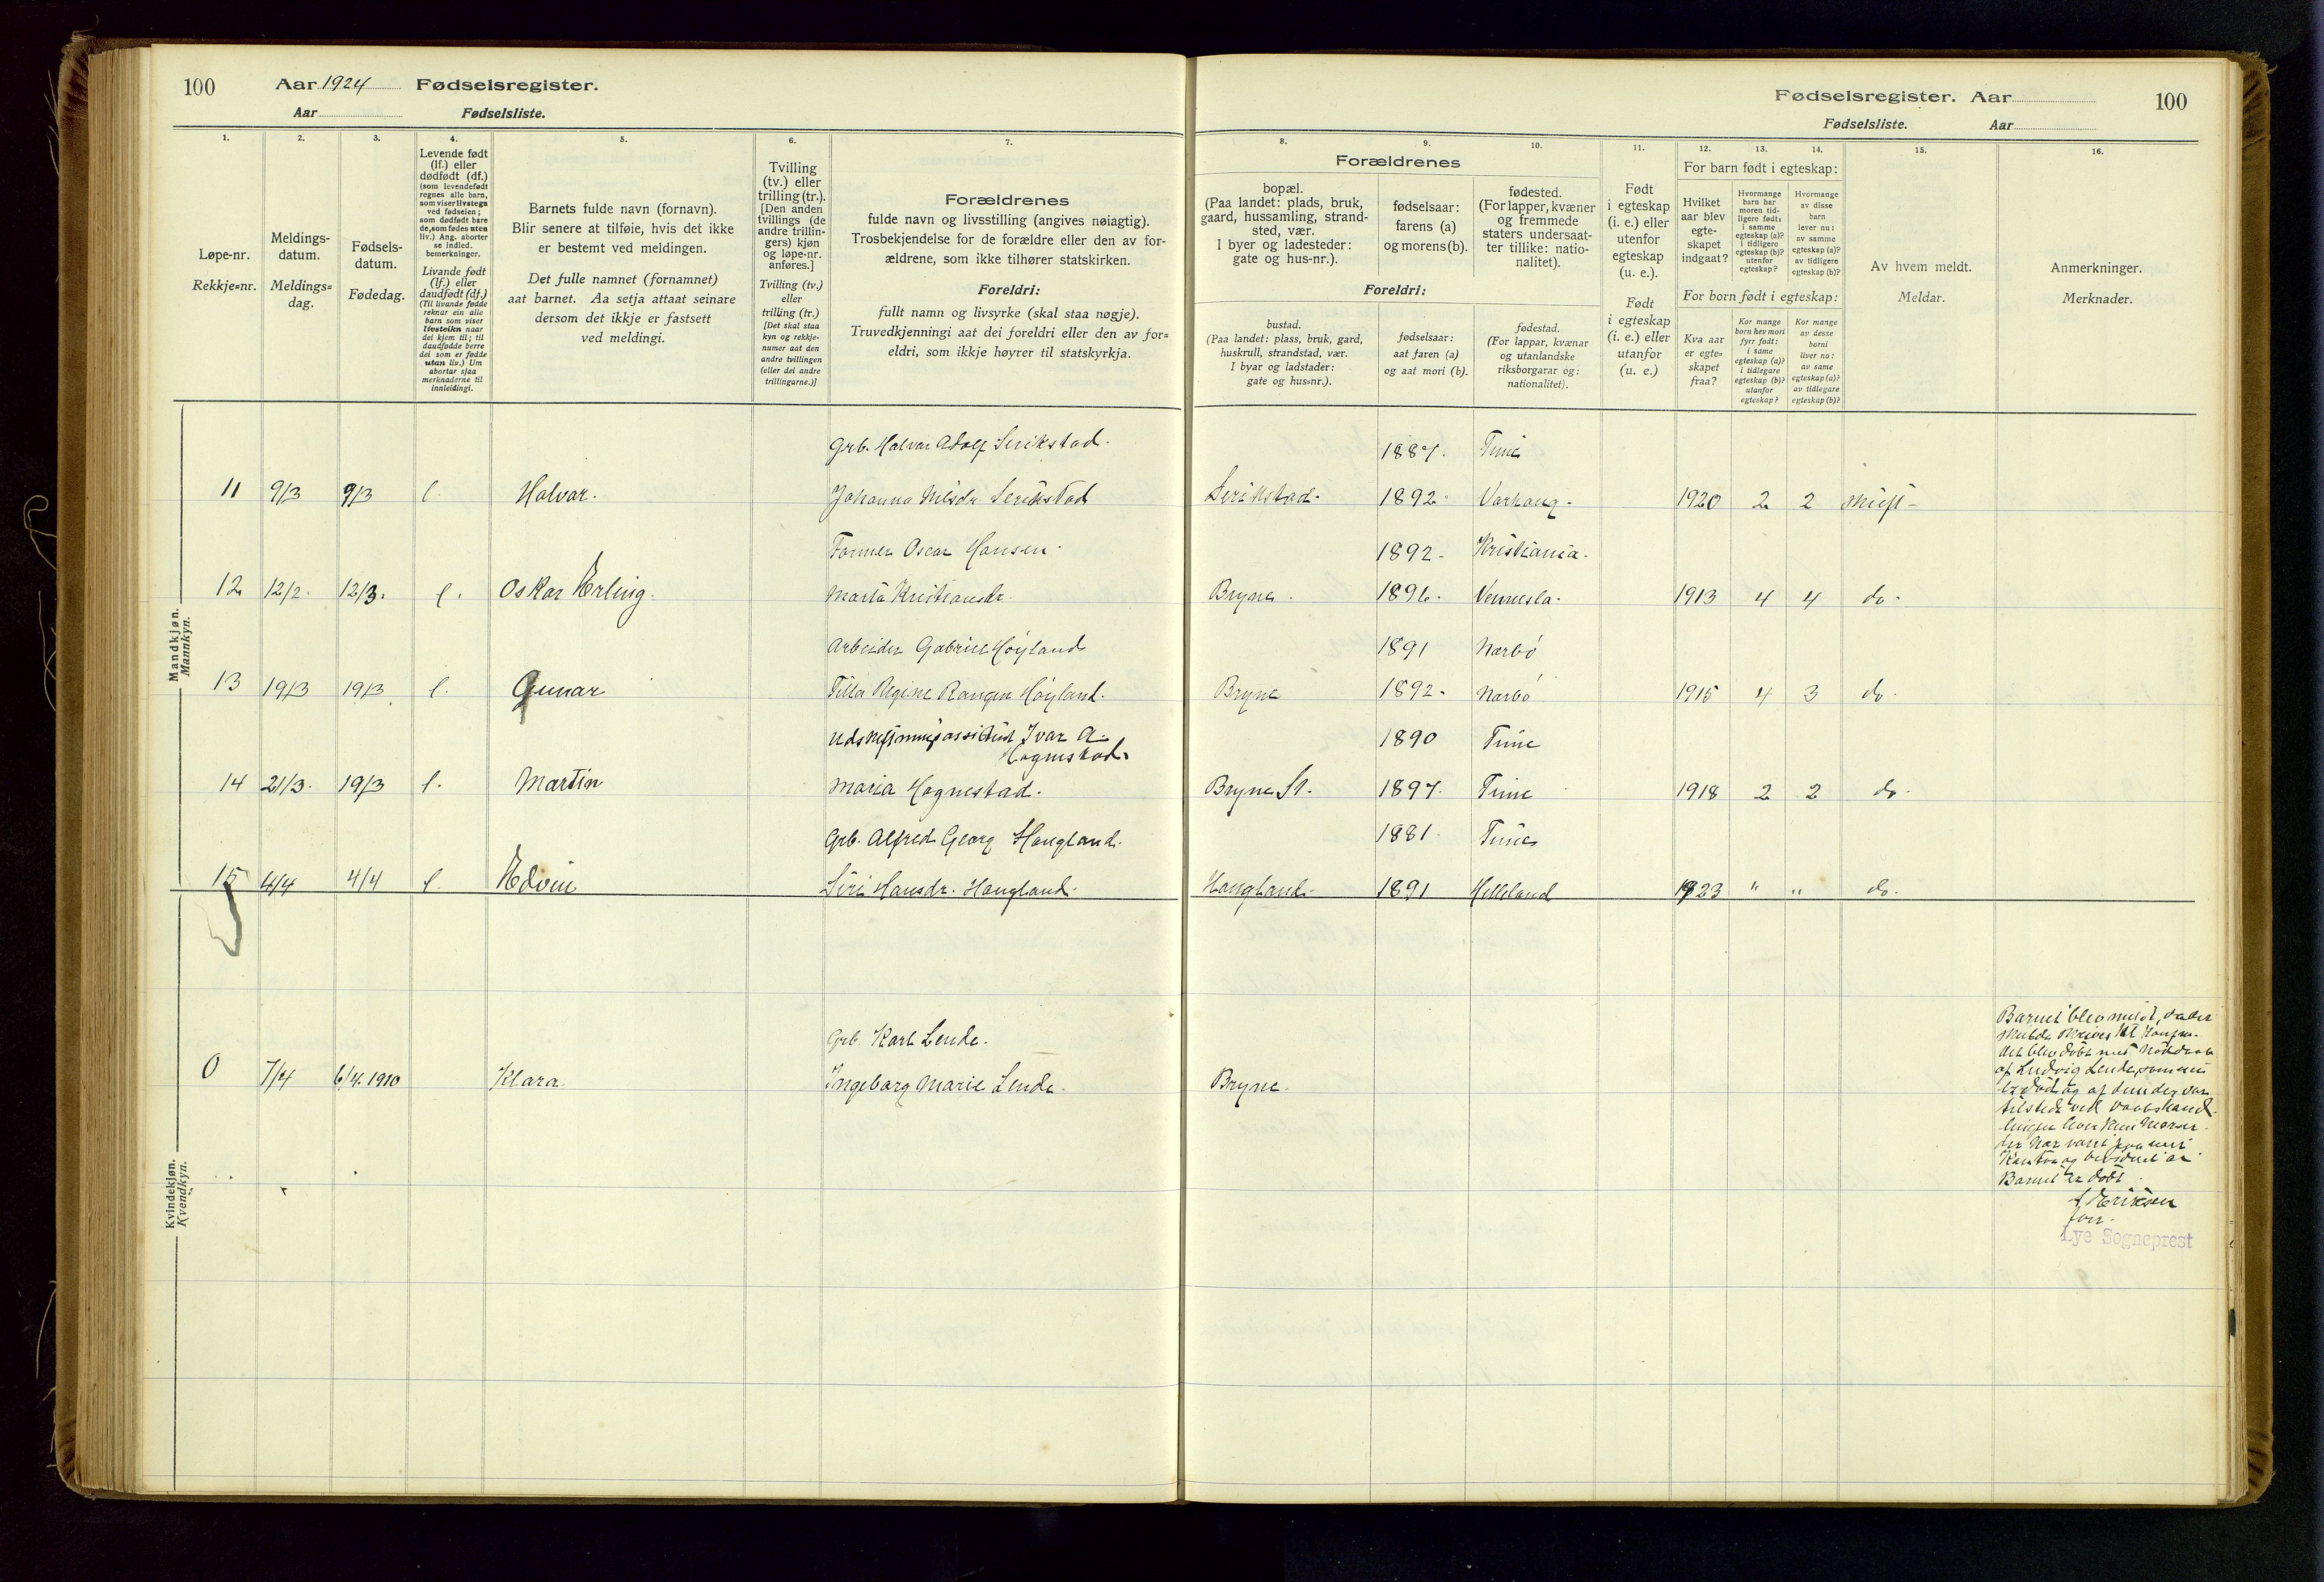 100 Aar 1924 Fødselsregister.
Aar Fødselsliste.
Fødselsregister. Aar 100
Fødselsliste. Aar
1. 2. 3. 4. 5. 6. 7. 8. 9. 10. 11. 12. 13. 14. 15. 16.
Løpe-nr.
Rekkje=nr.
Meldings-
datum.
Meldings=
dag.
Fødsels-
datum.
Fødedag.
Levende født
(lf.) eller
dødfødt (df.)
(som levendefødt
regnes alle barn,
som viser livstegn
ved fødselen;
som dødfødt bare
de, som fødes uten
liv.) Ang. aborter
se indled.
bemerkninger.
Livande født
(lf.) eller
daudfødt (df.)
(Til livande fødde
reknar ein alle
barn som viser
livsteikn naar
dei kjem til; til
daudfødde berre
dei som er fødde
utan liv.) Um
abortar sjaa
merknaderne til
innleidingi.
Barnets fulde navn (fornavn).
Blir senere at tilføie, hvis det ikke
er bestemt ved meldingen.
Det fulle namnet (fornamnet)
aat barnet. Aa setja attaat seinare
dersom det ikkje er fastsett
ved meldingi.
Tvilling
(tv.) eller
trilling (tr.).
[Den anden
tvillings (de
andre trillin-
gers) kjøn
og løpe-nr.
anføres.]
Tvilling (tv.)
eller
trilling (tr.)
[Det skal staa
kyn og rekkje-
numer aat den
andre tvillingen
(eller dei andre
trillingarne.)]
Forældrenes
fulde navn og livsstilling (angives nøiagtig).
Trosbekjendelse for de forældre eller den av for-
ældrene, som ikke tilhører statskirken.
Foreldri:
fullt namn og livsyrke (skal staa nøgje).
Truvedkjenningi aat dei foreldri eller den av for=
eldri, som ikkje høyrer til statskyrkja.
Forældrenes
bopæl.
(Paa landet: plads, bruk,
gaard, hussamling, strand-
sted, vær.
I byer og ladesteder:
gate og hus-nr.).
fødselsaar:
farens (a)
og morens (b).
fødested.
(For lapper, kvæner
og fremmede
staters undersaat-
ter tillike: natio-
nalitet).
Foreldri:
bustad.
(Paa landet: plass, bruk, gard,
huskrull, strandstad, vær.
I byar og ladstader:
gate og hus=nr.).
fødselsaar:
aat faren (a)
og aat mori (b).
fødestad.
(For lappar, kvænar
og utanlandske
riksborgarar og:
nationalitet).
Født
i egteskap
(i. e.) eller
utenfor
egteskap
(u. e.).
Født
i egteskap
(i. e.) eller
utanfor
(u. e.)
For barn født i egteskap:
Hvilket
aar blev
egte-
skapet
indgaat?
Hvormange
barn har
moren tid-
ligere født:
i samme
egteskap (a)?
i tidligere
egteskap (b)?
utenfor
egteskap?
Hvormange
av disse
barn
lever nu:
av samme
egteskap (a)?
av tidligere
egteskap (b)?
For born født i egteskap:
Kva aar
er egte=
skapet
fraa?
Kor mange
born hev mori
fyrr født:
i same
egteskap (a)?
i tidlegare
egteskap (b)?
utanfor
egteskap?
Kor mange
av desse
borni
liver no:
av same
egteskap (a)?
av tidlegare
egteskap (b)?
Av hvem meldt.
Meldar.
Anmerkninger.
Merknader.
Mandkjøn.
Mannkyn.
Grb. Halvar Adolf Serikstad. 1887. Time
11 9/3 9/3 l. Halvar. Johanna Nilsdr. Serikstad Serikstad. 1892. Varhaug. 1920 2 2
Former Oscar Hansen. 1892. Kristiania.
12 12/2. 12/3. l. Oskar Erling. Marta Kristiansdr. Bryne. 1896. Vennesla. 1913 4 4 do.
Arbeider Gabriel Høyland 1891 Nærbø
13 19/3 19/3 l. Gunar Regine Høyland. Bryne 1892. Nærbø 1915 4 3 do.
Ivar A. 1890 Time
Hognestad.
14 21/3. 19/3 l. Martin Maria Hognestad. Bryne St. 1897. Time 1918 2 2 do.
Grb. Alfred Georg Haugland. 1881. Time
15 4/4 4/4 l. Edvin Siri Hansdr. Haugland. Haugland. 1891 Helleland 1923 " " do.
Kvindekjøn.
Kvendkyn.
Grb. Karl Lende.
0 7/4 6/4. 1910 Klara. Ingeborg Marie Lende. Bryne.
Barnet blev meldt, da det
skulde skrives til
det blev døbt med
af Ludvig Lende, som nu
er død, og af dem der var
tilstede ved
lever kun Moren
der har været paa mit
Kontor og bevidnet at
Barnet er døbt.
Eriksen
Lye Sogneprest